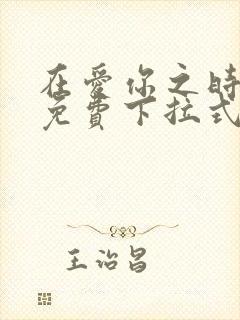 在爱你之時
免費下拉式
王治昌